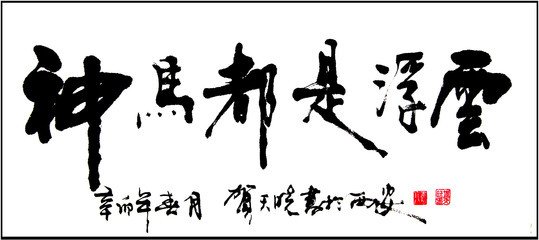 神馬都是浮雲
辛卯年春月 賀天曉書於西安